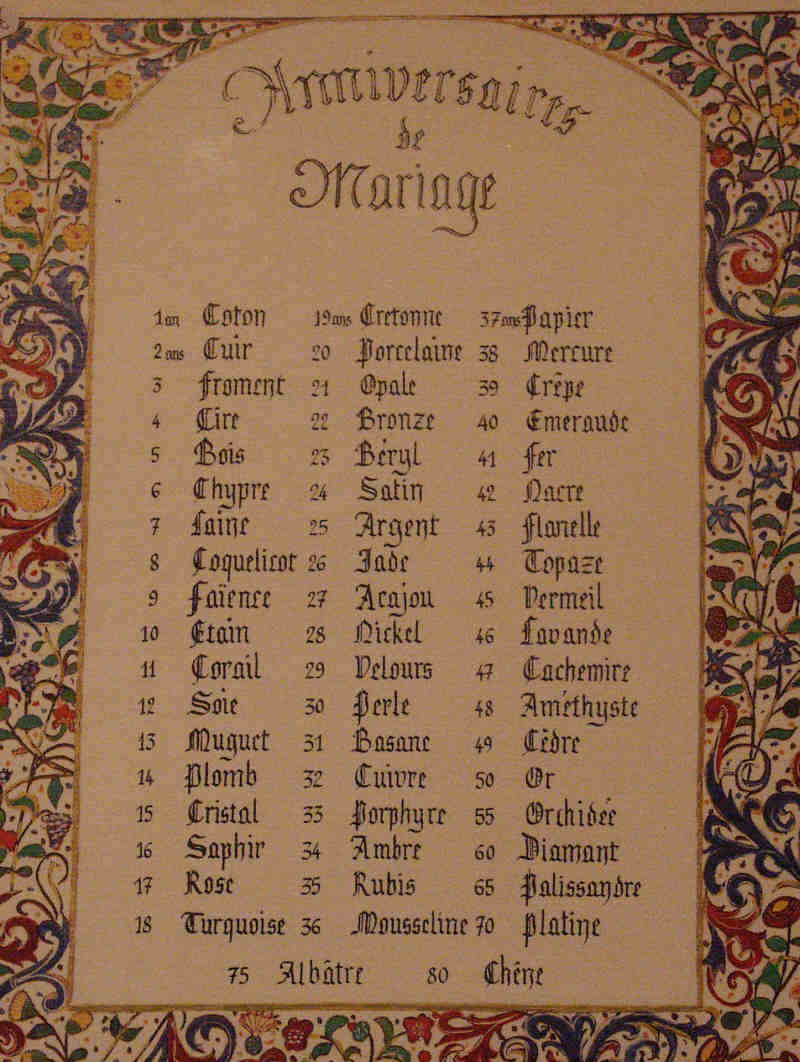 Anniversaires
de
Mariage
1an Coton 19ans Cretonne 37ans Papier
2ans Cuir 20 Porcelaine 38 Mercure
3 froment 21 Opale 39 Crêpe
4 Cire 22 Bronze 40 Emeraude
5 Bois 23 Béryl 41 fer
6 Chypre 24 Satin 42 Nacre
7 laine 25 Argent 43 flanelle
8 Coquelicot 26 Jade 44 Topaze
9 faïence 27 Acajou 45 Vermeil
10 Etain 28 Nickel 46 lavande
11 Corail 29 Velours 47 Cachemire
12 Soie 30 Perle 48 Améthyste
13 Muguet 31 Basane 49 Cèdre
14 Plomb 32 Cuivre 50 Or
15 Cristal 33 Porphyre 55 Orchidée
16 Saphir 34 Ambre 60 Diamant
17 Rose 35 Rubis 65 Palissandre
18 Turquoise 36 Mousseline 70 Platine
75 Albâtre 80 Chêne